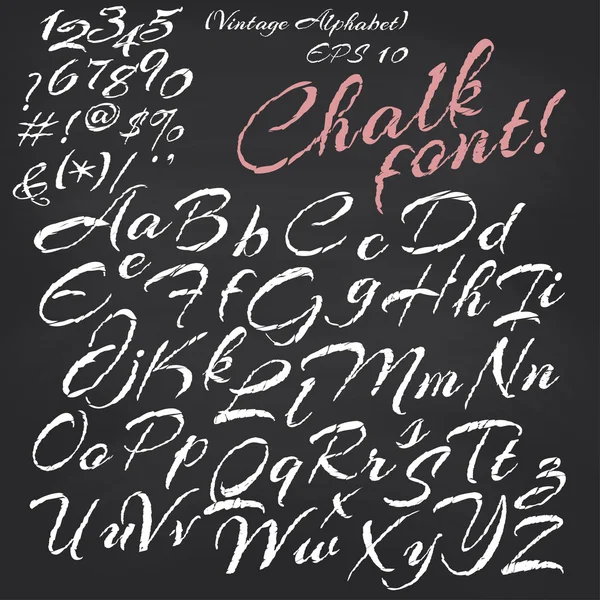 12345
(Vintage Alphabet)
EPS 10
?67890
#!@$%
&(*)/.,
Chalk
font!
AaBbCcDd
EeFfGgHhIi
JjKkLlMmNn
OoPpQqRrSsTt
UuVvWwXxYyZz